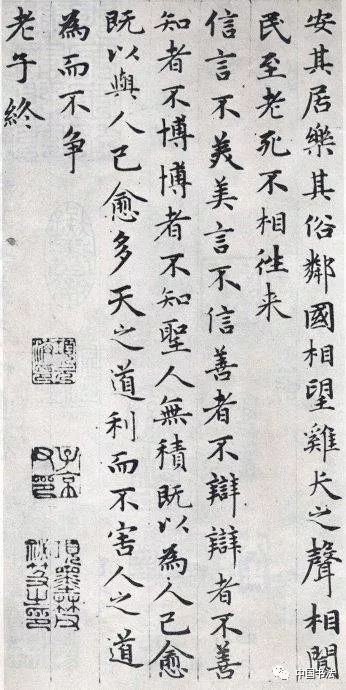 安其居樂其俗鄰國相望雞犬之聲相聞
民至老死不相徃来
信言不美美言不信善者不辯辯者不善
知者不博博者不知聖人無積既以為人己愈
既以與人己愈多天之道利而不害人之道
為而不争
老子終
項元汴印
子京父印
項墨林父秘笈之印
中国书法